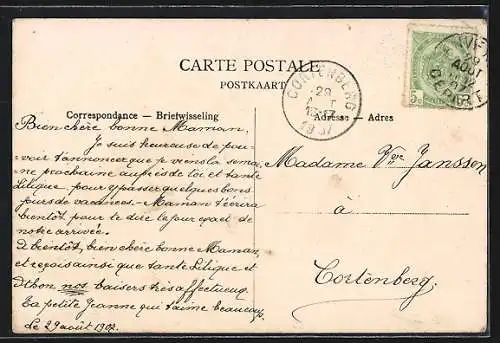 CARTE POSTALE
POSTKAART
CORTENBERG
29
1907
AOUT
DEPART
5c
Correspondance — Briefwisseling
Adresse — Adres
Bien chère bonne Maman,
Je suis heureuse de pou-
voir t'annoncer que je viens la semai
ne prochaine auprès de toi et tante
Lilique, pour y passer quelques bons
jours de vacances. - Maman t'écrira
bientôt pour te dire le jour exact de
notre arrivée.
A bientôt, bien chère bonne Maman,
et reçois ainsi que tante Lilique et
nos baisers très affectueux.
Ta petite Jeanne qui t'aime beaucoup.
Le 29 août 1907.
Madame Vve Janssen
à
Cortenberg.